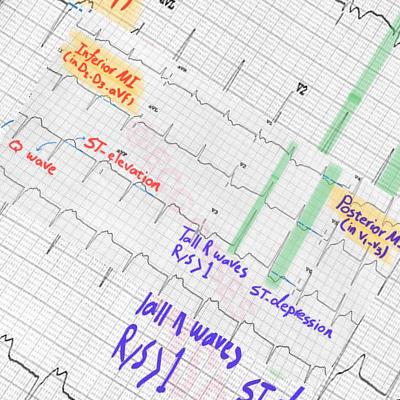 aVL
V2
Inferior MI
(in D2-D3-aVF)
aVR
aVL
V2
Q wave
ST-elevation
Posterior M
(in V1-V3)
V3
Tall R waves
R/S>1
ST-depression
Tall R waves
R/S>1
ST